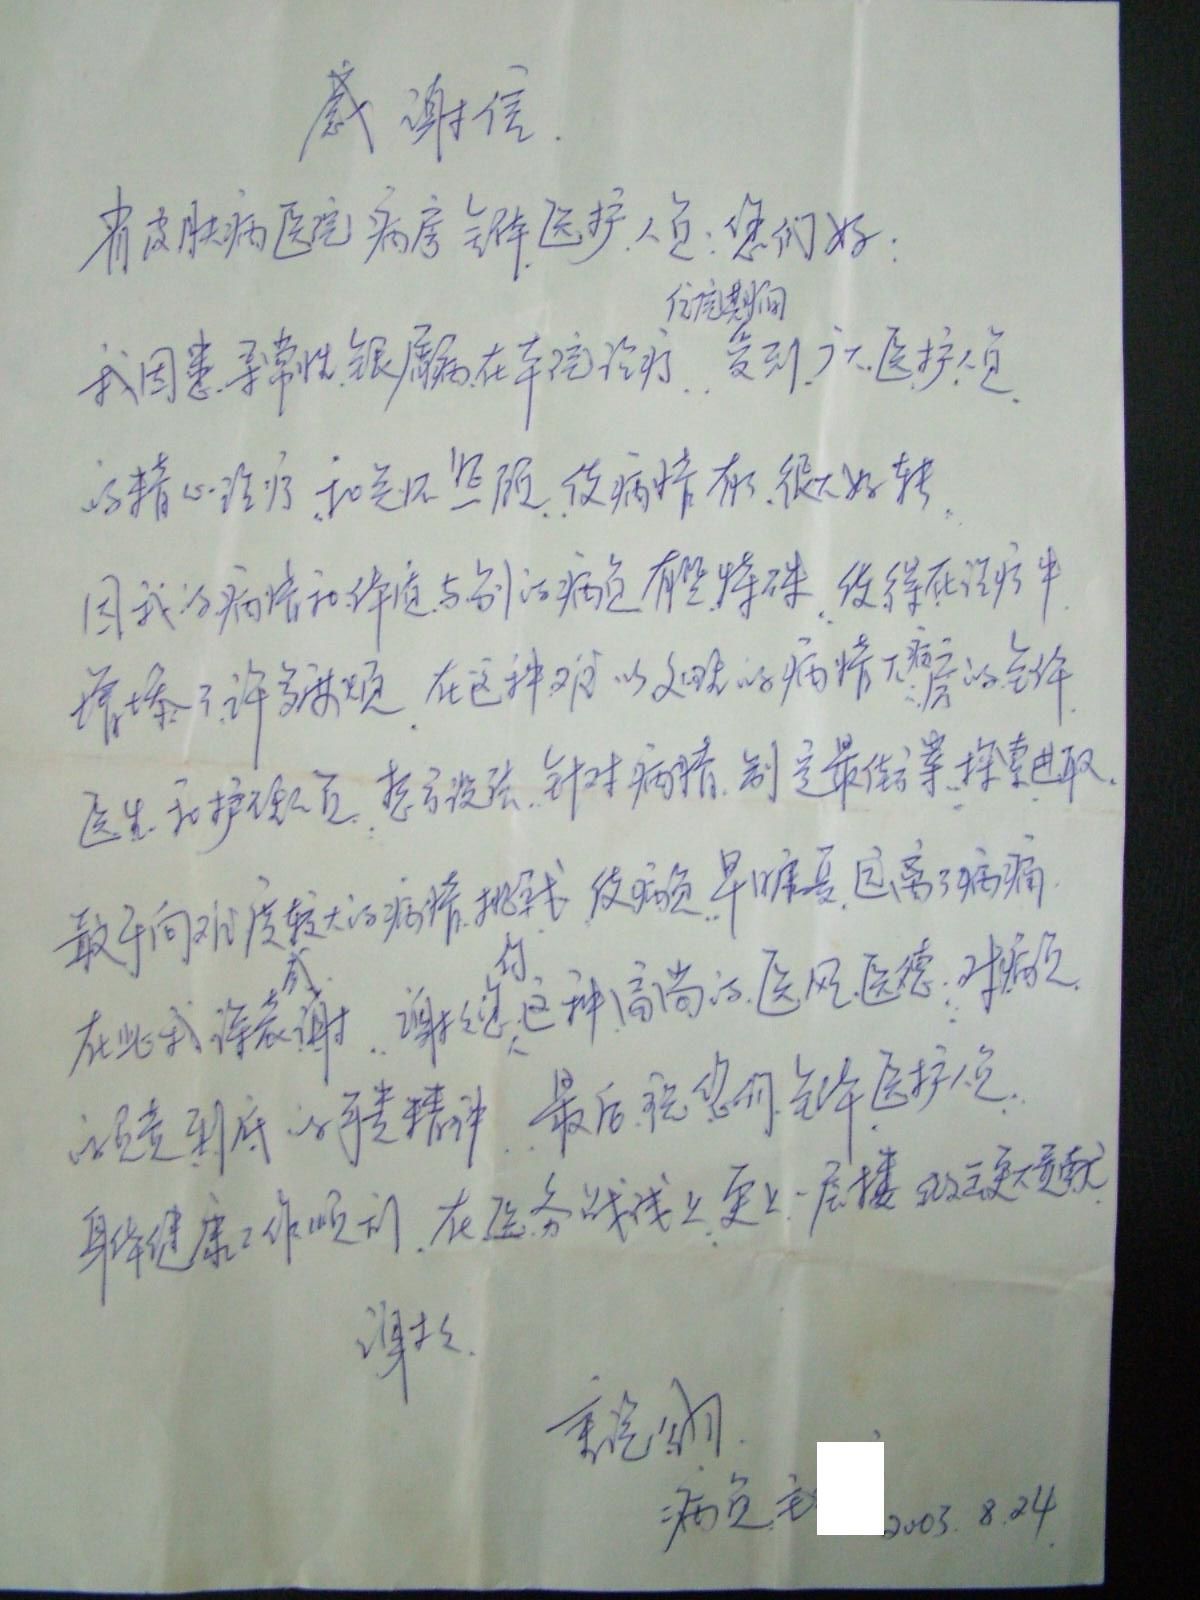 感谢信.
省皮肤病医院病房全体医护人员:您们好:
住院期间
我因患寻常性银屑病在本院诊疗..受到广大医护人员.
的精心诊疗和关怀照顾,使病情有了很大好转.
因我的病情和体质与别的病员有些特殊,使得在诊疗中
增添了许多麻烦,在这种难以处理的病情下病房的全体
医生和护理人员,想方设法,针对病情制定最佳方案,探索进取,
敢于向难度较大的病情挑战,使病员早日康复,远离了病痛
在此我深表感谢..谢谢您们这种高尚的医风医德,对病员
的负责到底的可贵精神..最后祝您们全体医护人员.
身体健康工作顺利,在医务战线上更上一层楼 做出更大贡献
谢谢.
病员
2003.8.24.